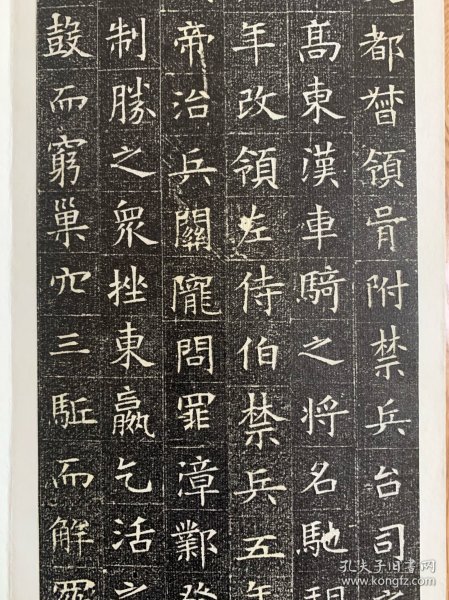 都督領胥附禁兵台司
髙東漢車騎之將名馳
年改領左侍伯禁兵五年
帝治兵關隴問罪漳鄴
制勝之衆挫東嬴乞活之
鼓而窮巢穴三駈而解
孔夫子旧书网
kongfz.com